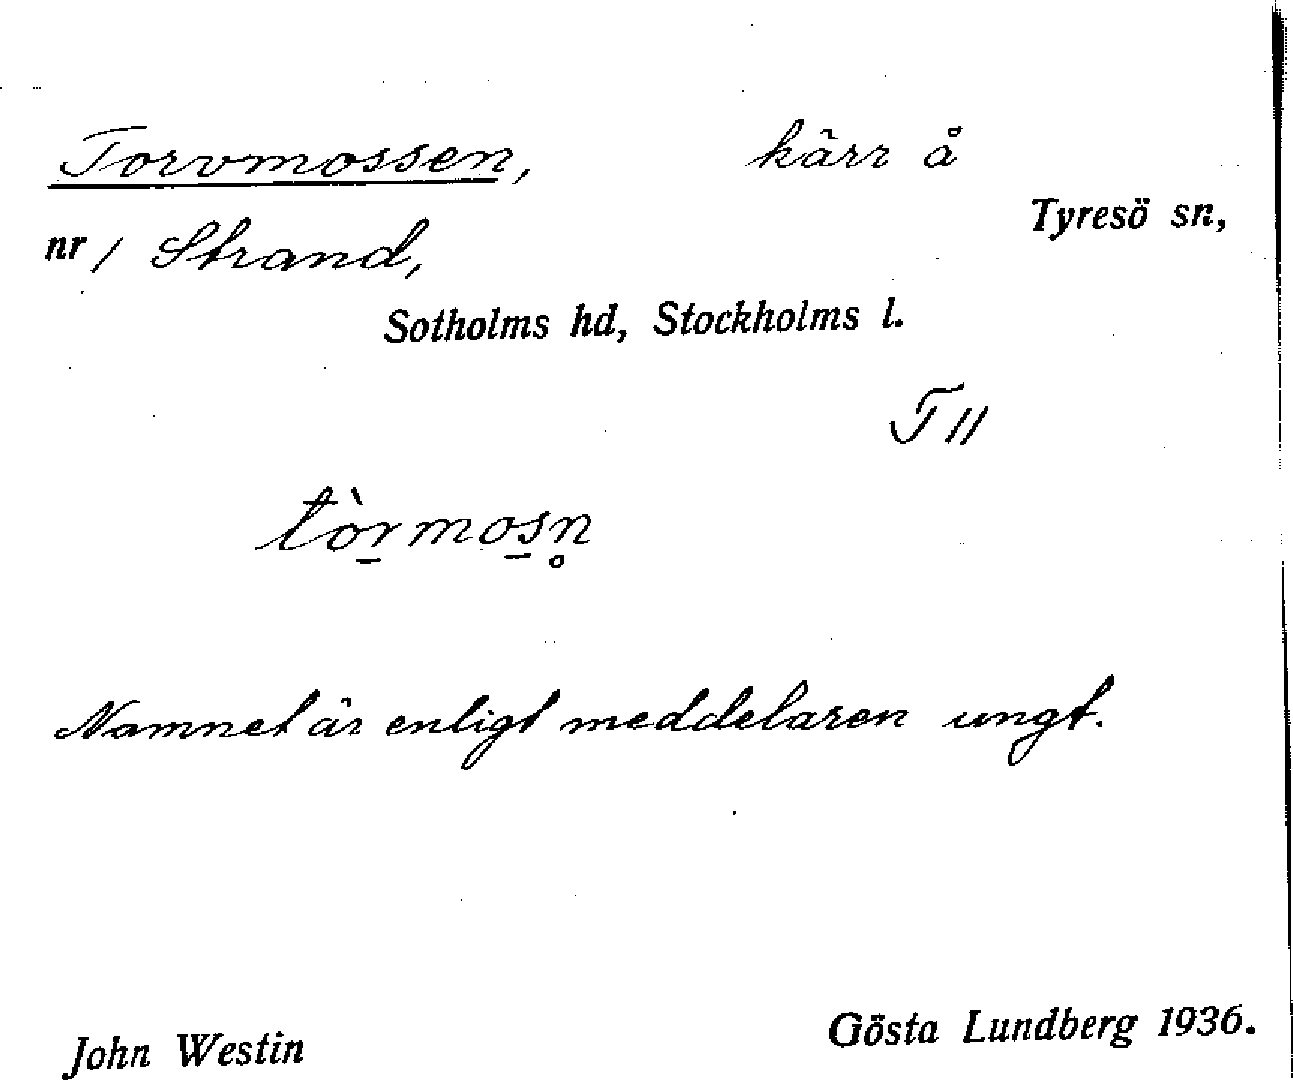 Torvmossen, kärr å
Tyresö sn,
nr 1 Strand,
Sotholms hd, Stockholms l.
T 11
tòr̲mos̲n̥
Namnet är enligt meddelaren ungt.
John Westin Gösta Lundberg 1936.